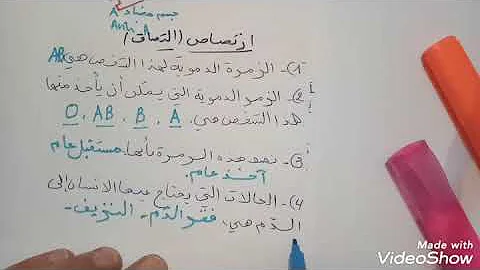 A جسم مضاد
Anti
ارتصاص (التراص)
1)- الزمرة الدموية لهذا الشخص هي AB
2)- الزمر الدموية التي يمكن أن يأخذ منها
هذا الشخص هي: A ، B ، AB ، O
3)- نصف هذه الزمرة بأنها: مستقبل عام
آخذ عام.
4)- الحالات التي يحتاج فيها الانسان إلى
الدم هي: فقر الدم - النزيف -
Made with
VideoShow